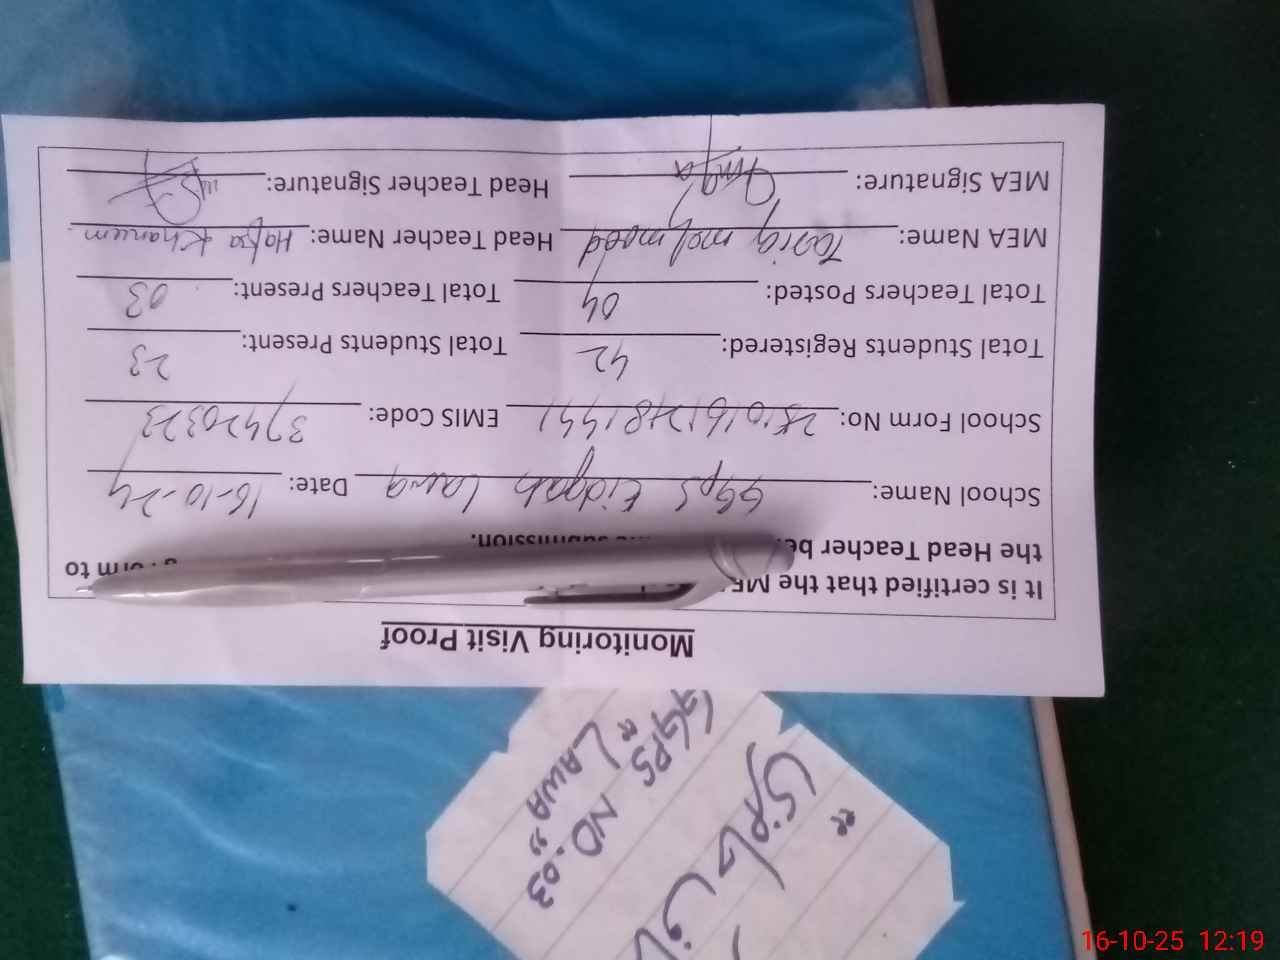 Monitoring Visit Proof
It is certified that the ME
the Head Teacher be submission.
School Name: GGPS Eidgah Lawa Date: 16-10-24
School Form No: EMIS Code: 37420323
Total Students Registered: 42 Total Students Present: 23
Total Teachers Posted: 04 Total Teachers Present: 03
MEA Name: Tariq mehmood Head Teacher Name: Hafsa Khanum
MEA Signature: Head Teacher Signature:
GGPS NO.03
"LAWA"
16-10-25 12:19